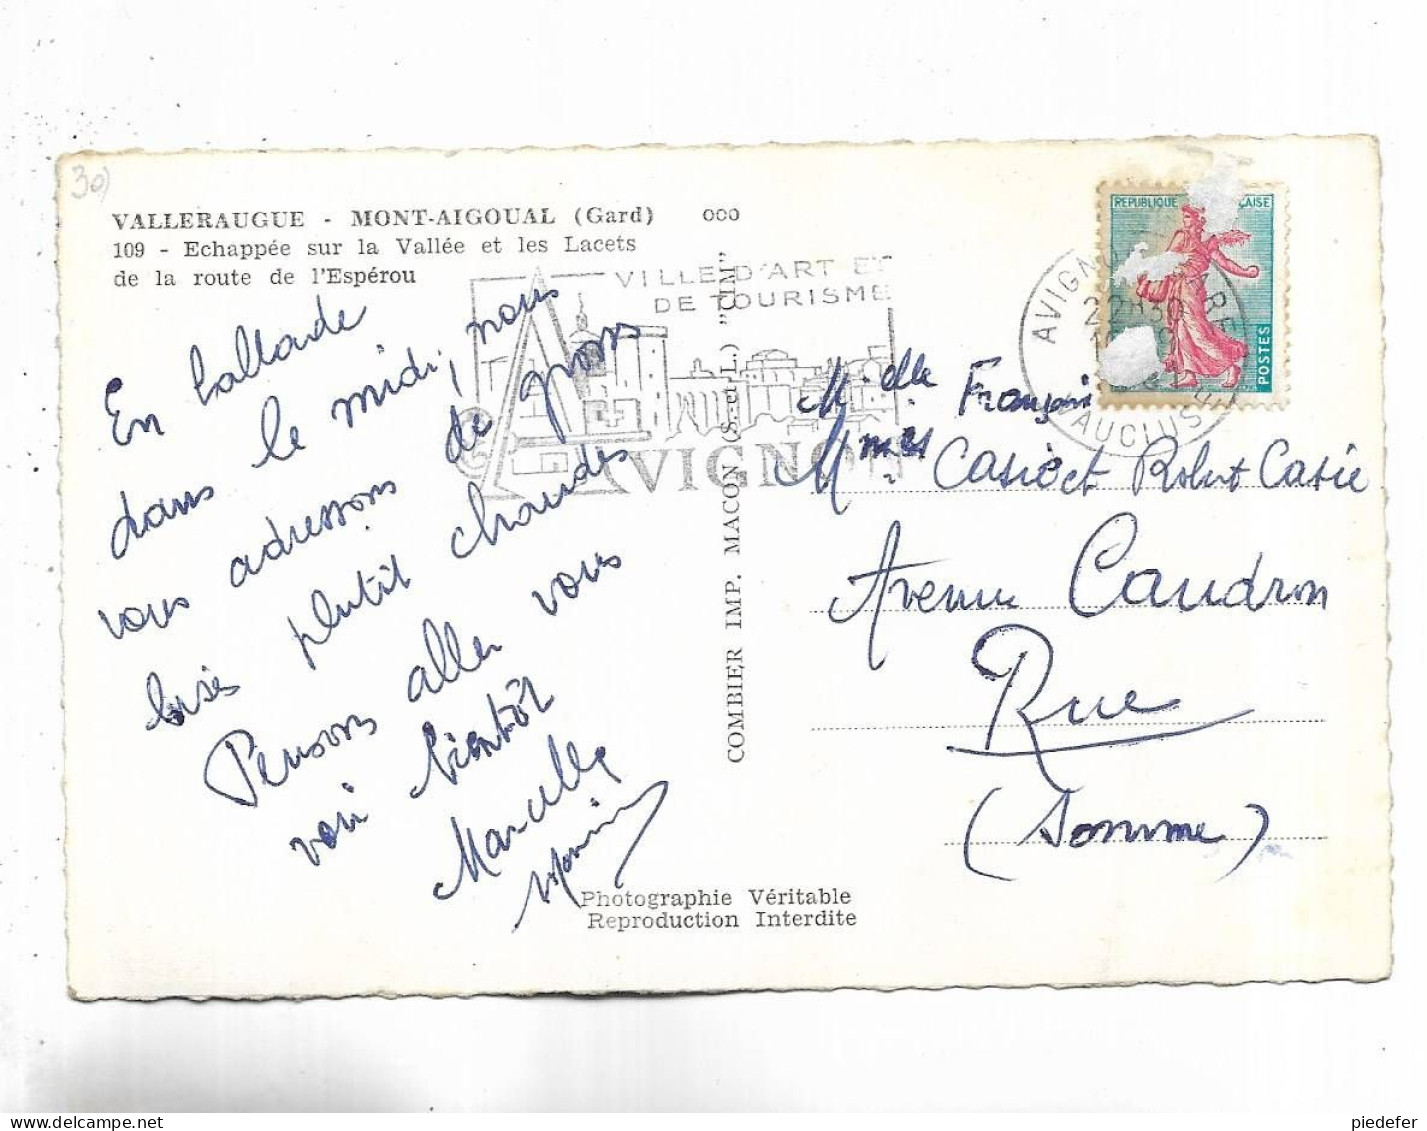 30)
VALLERAUGUE - MONT-AIGOUAL (Gard) 000
109 - Echappée sur la Vallée et les Lacets
de la route de l'Espérou
VILLE D'ART ET
DE TOURISME
AVIGNON
En ballade
dans le midi, nous
vous adressons de gros
bisés plutôt chaudes
Pensons aller vous
voir bientôt
Marcelle
COMBIER IMP. MACON (S.-et-L.) "CIM"
Photographie Véritable
Reproduction Interdite
REPUBLIQUE CAISE
POSTES
AVIGN RE
22H30
AUCLUS
Melle Françoise
Mmes Casié et Robert Casie
Avenue Caudron
Rue
(Somme)
piedefer